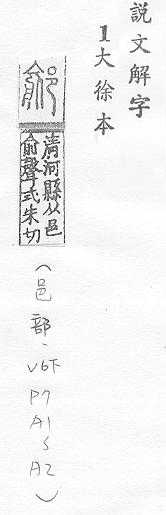 説文解字
1大徐本
鄃
清河縣从邑
俞聲式朱切
(邑部、V6下P7A1~A2)